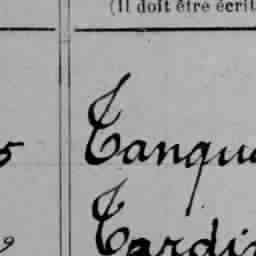 (Il doit être écrit
5 Tanqu
9 Tardi